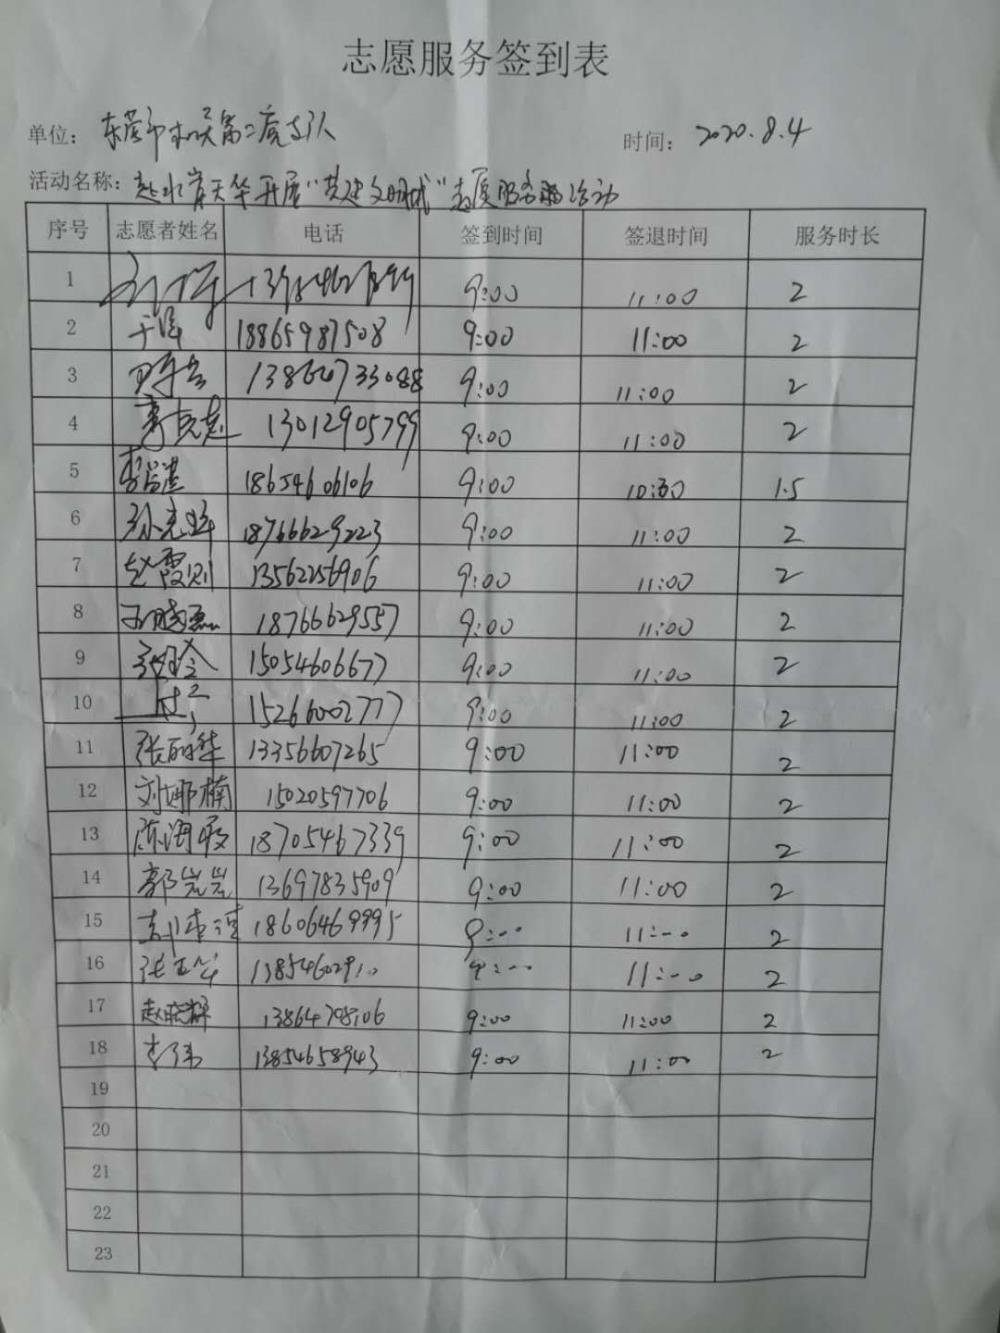 志愿服务签到表
单位： 东营市 第二 支队 时间： 2020.8.4
活动名称： 赴水岸天华开展“共建文明城”志愿服务活动
序号 志愿者姓名 电话 签到时间 签退时间 服务时长
1 9:00 11:00 2
2 于 18865987508 9:00 11:00 2
3 13864733088 9:00 11:00 2
4 13012905799 9:00 11:00 2
5 18654606106 9:00 10:30 1.5
6 孙 18766629223 9:00 11:00 2
7 赵霞 13562256906 9:00 11:00 2
8 18766629557 9:00 11:00 2
9 15054606677 9:00 11:00 2
10 15266002777 9:00 11:00 2
11 张丽华 13356607265 9:00 11:00 2
12 刘娜楠 15020597706 9:00 11:00 2
13 陈海 18705467339 9:00 11:00 2
14 郭岩岩 13697835909 9:00 11:00 2
15 18606469995 9:00 11:00 2
16 张 13854602910 9:00 11:00 2
17 赵晓辉 13864798106 9:00 11:00 2
18 李伟 13854658943 9:00 11:00 2
19
20
21
22
23